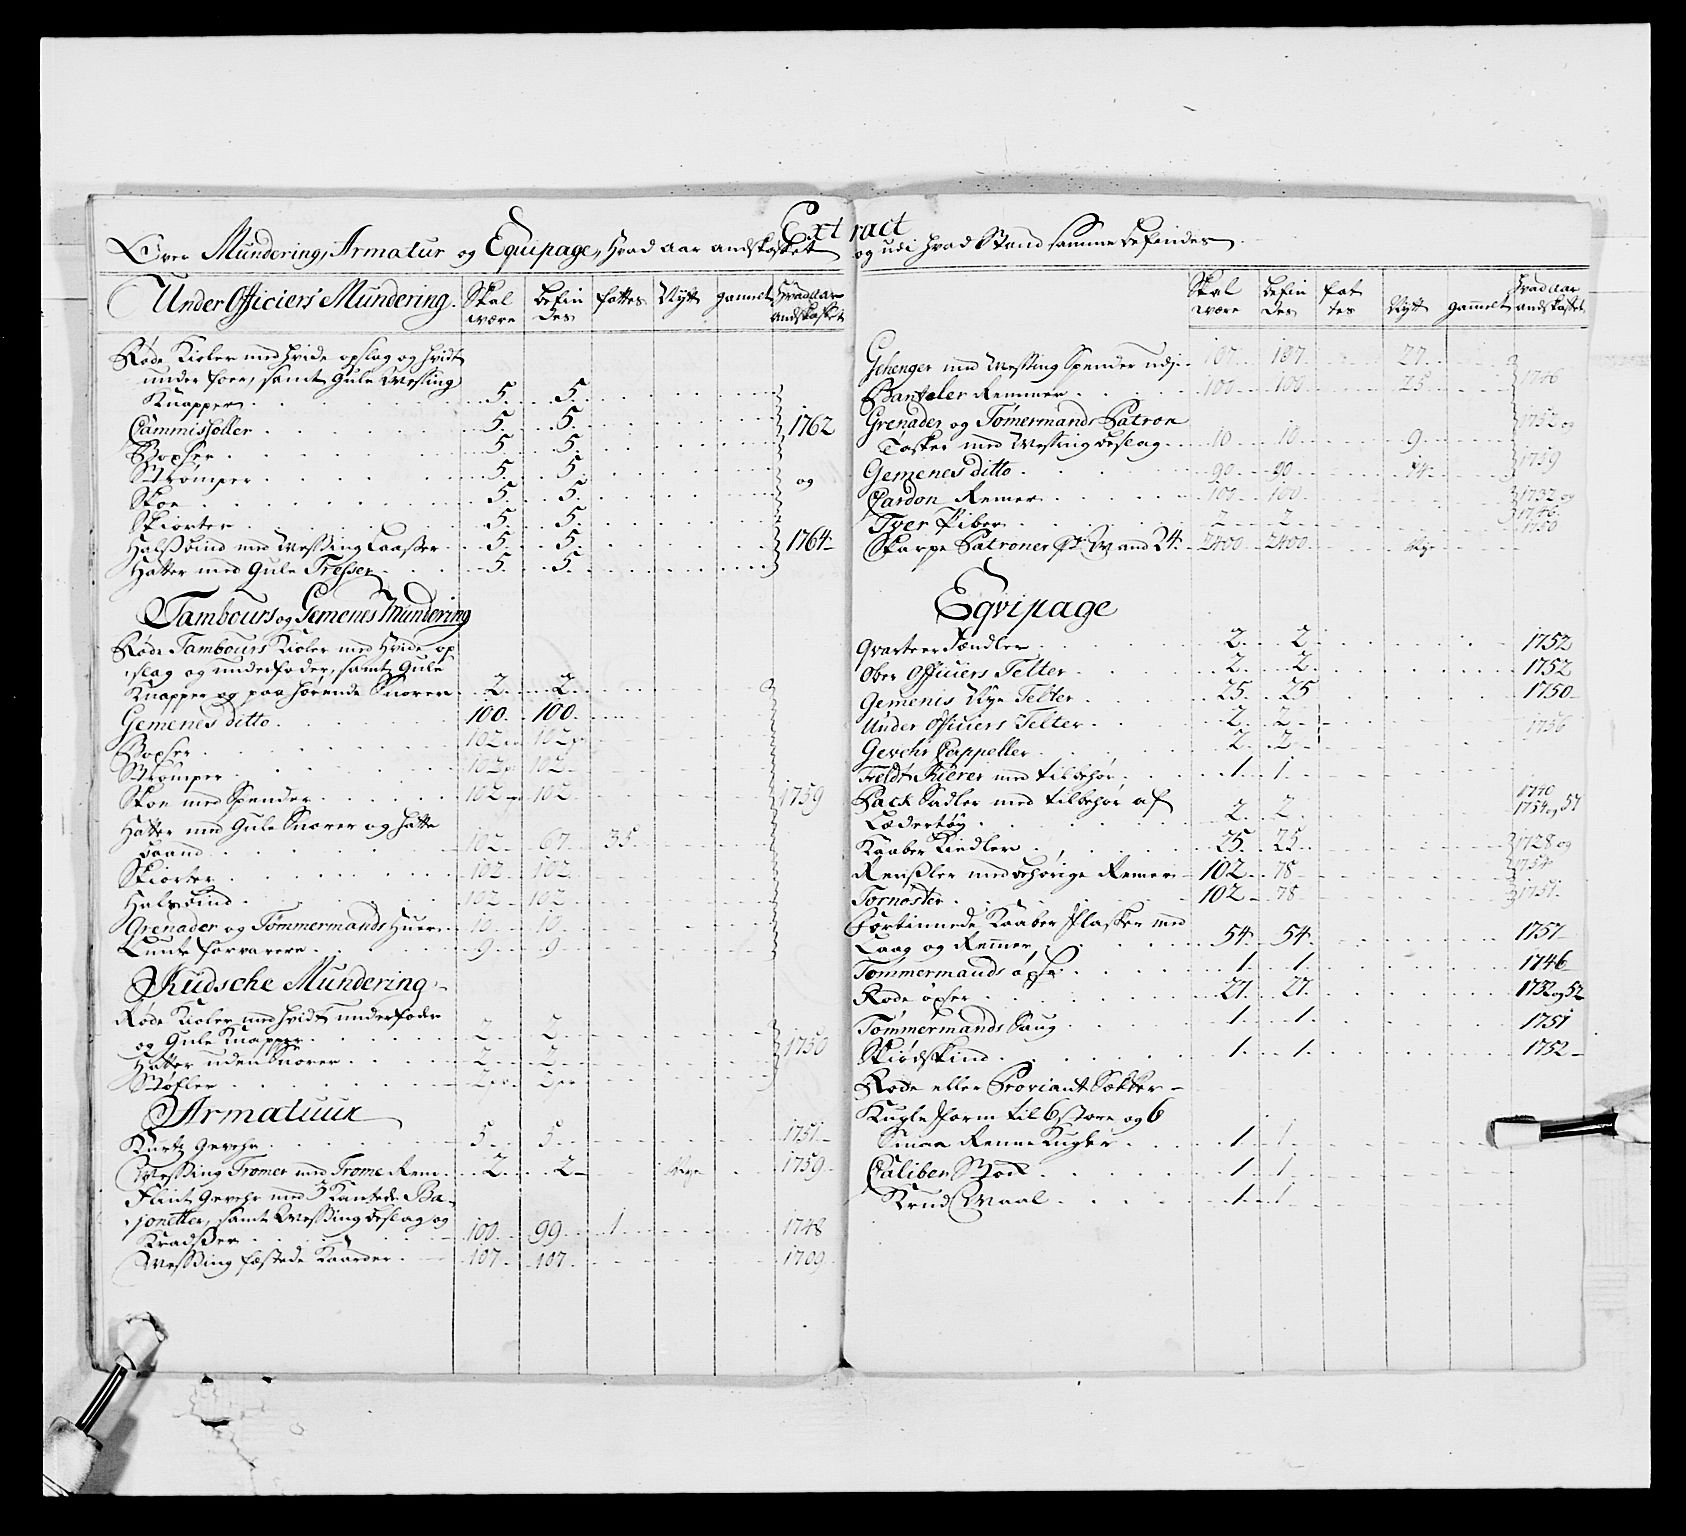 Extract
Over Mundering, Armatur og Equipage, Hvad aar andskaffet og udi hvad Stand samme befindes
Under Officiers Mundering. Skal være Befin des fattes Nytt gammelt Hvad aar andskaffet
Røde Kioler med hvide opslag og hvidt
under foer, samt Gule Messing
Knapper 5. 5.
Cammisholler 5. 5. 1762
Boxser 5. 5.
Strømper 5. 5. og
Skoe 5. 5.
Skiorter 5. 5.
Halsbind med Messing Laasser 5. 5. 1764
Hatter med Gule Tresser 5. 5.
Tambours og Gemenes Mundering
Røde Tambours Kioler med Hvide op
slag og underfoder, samt Gule
Knapper og paahørende Snorer 2. 2.
Gemenes ditto 100. 100.
Boxser 102 pr 102 pr
Strømper 102 pr 102
Skoe med Spender 102 pr 102 1759
Hatter med Gule Snorer og hatte
baand 102 67 35
Skiorter 102 102
Halsbind 102 102
Grenader og Tømmermands Huer 10 10
Lunte forvarere 9 9
Kudsche Mundering
Røde Kioler med hvidt underfoder
og Gule Knapper 2 2
Hatter uden Snorer 2 2 1750
Støfler 2 pr 2 pr
Armatuur
Kurtz Gevehr 5 5 1751
Messing Tromer med Trome Rem 2 2 Nye 1759
Flint Gevehr med 3 Kantede Ba-
jonetter, samt Messing beslag og
Kradsser 100 99 1 1748
Messing fæstede Kaarder 107 107 1709
Skal være Befin des fat tes Nytt gammelt Hvad aar andskaffet
Gehenger med Messing Spender udj 107 107 27
Banteler Remmer 100 100 25 1746
Grenader og Tømermands Patron
Tasker med Messing beslag 10 10 9 1752 og
Gemenes ditto 90 90 14 1759
Cardon Remer 100 100 1732 og
Tver Piber 2 2 1746
Skarpe Patroner pr Mand 24 2400 2400 Nye 1760
Eqvipage
Qvarteer Fændler 2. 2. 1752
Ober Officiers Telter 2. 2. 1752
Gemenis Nye Telter 25 25 1750
Under Officiers Telter 2. 2 1756
Gevehr Cappeller 2. 2
Feldt Skierer med tilbehør 1 1
Pack Sadler med tilbehør af 1710
Lædertøy 2 2 1754 og 57
Kaaber Kiedler 25 25 1728 og
Rensler med behørige Remer 102 78 1754
Tornøster 102 78 1757
Fortinnede Kaaber Flasker med
Laag og Remer 54 54 1757
Tømmermands øxse 1. 1. 1746
Rode øxser 27 27 1732 og 52
Tømmermands Saug 1. 1. 1751
Skiødskind 1. 1. 1752
Rode eller Proviant Sækker
Kugle Form til 6 store og 6
Smaa Renne Kugler 1. 1
Caliber Stock 1 1
Krud Maal 1 1